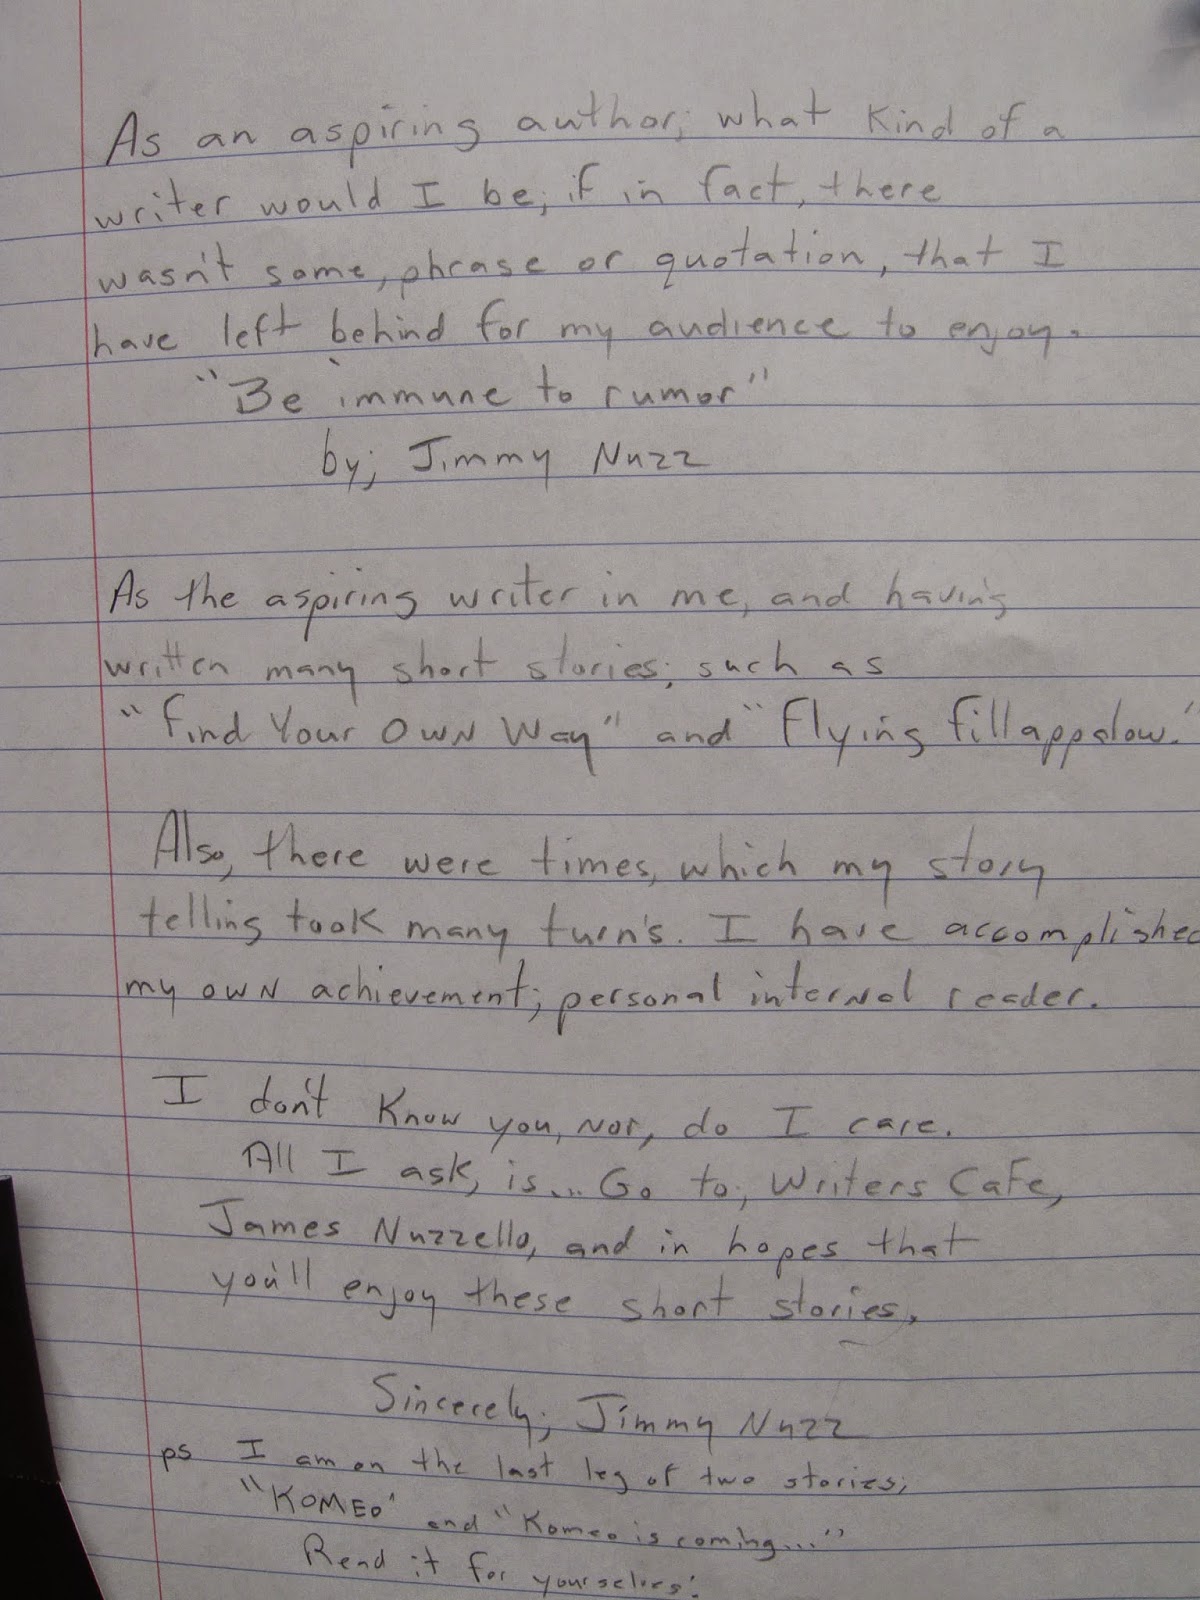 As an aspiring author; what kind of a
writer would I be; if in fact, there
wasn't some, phrase or quotation, that I
have left behind for my audience to enjoy.
"Be immune to rumor"
by; Jimmy Nuzz
As the aspiring writer in me, and having
written many short stories; such as
"Find Your Own Way" and "Flying fillappalow."
Also, there were times, which my story
telling took many turn's. I have accomplished
my own achievement; personal internal reader.
I don't know you, nor, do I care.
All I ask, is... Go to; Writers Cafe,
James Nuzzello, and in hopes that
you'll enjoy these short stories.
Sincerely; Jimmy Nuzz
ps I am on the last leg of two stories;
"KOMEO" and "Komeo is coming..."
Read it for yourselves!